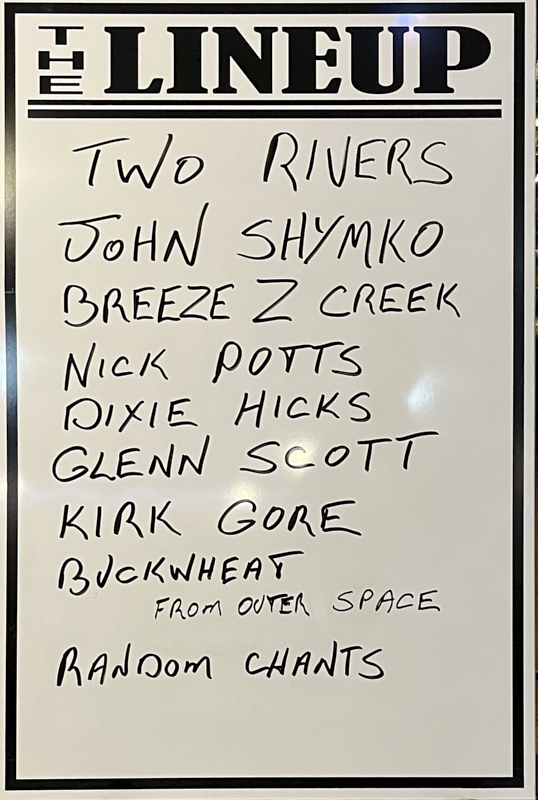 THE LINEUP
TWO RIVERS
JOHN SHYMKO
BREEZE Z CREEK
NICK POTTS
DIXIE HICKS
GLENN SCOTT
KIRK GORE
BUCKWHEAT
FROM OUTER SPACE
RANDOM CHANTS